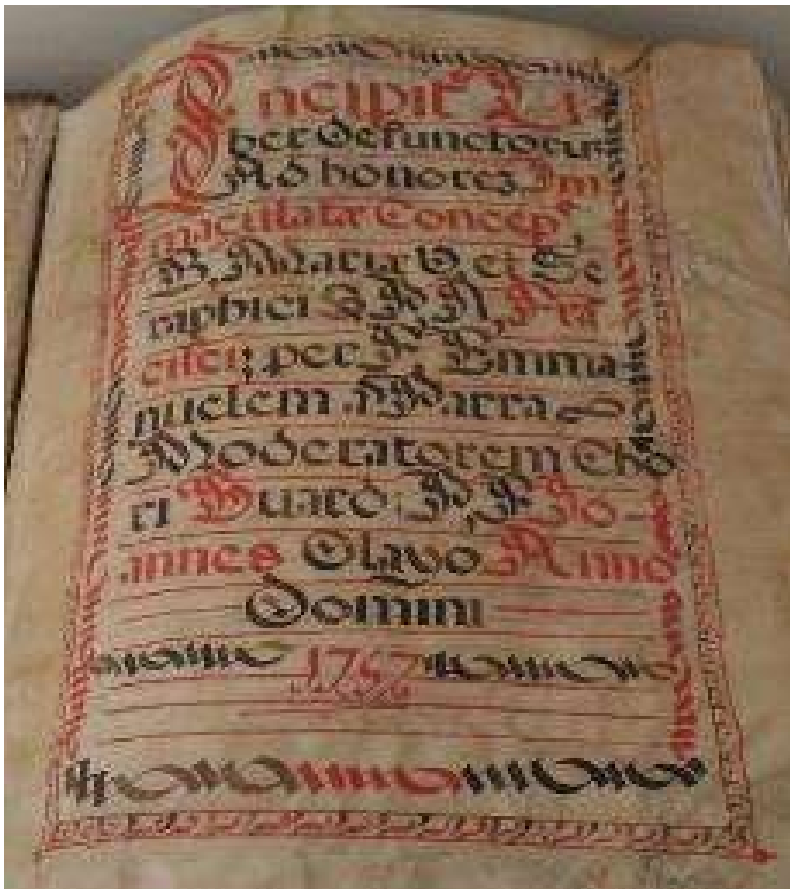 Incipit Li
ber Defunctoru
Ad honorez Im
maculatæ Concep
B. Mariæ V. et Se
raphici Fra
cisci; per Emma
nuelem Marra
Moderatorem Cho
ri Guard: Jo
annes Olavo Anno
Domini
1767